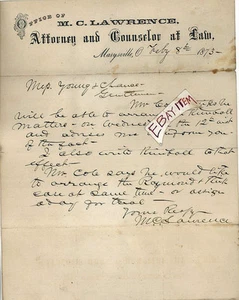 OFFICE OF
M. C. LAWRENCE,
Attorney and Counselor at Law,
Marysville, O. Feby 8th 1873-
Mess Young &
Gentlemen
Mr Co
will be able to arran Kimball
matter- on the 12 inst
and advises me you
of the fact-
I also write Kimball to that
effect-
Mr. Cole says he would like
to arrange the Raymond &
case at same time- or assign
a day for trial-
Yours Respy
MC Lawrence
EBAY ITEM